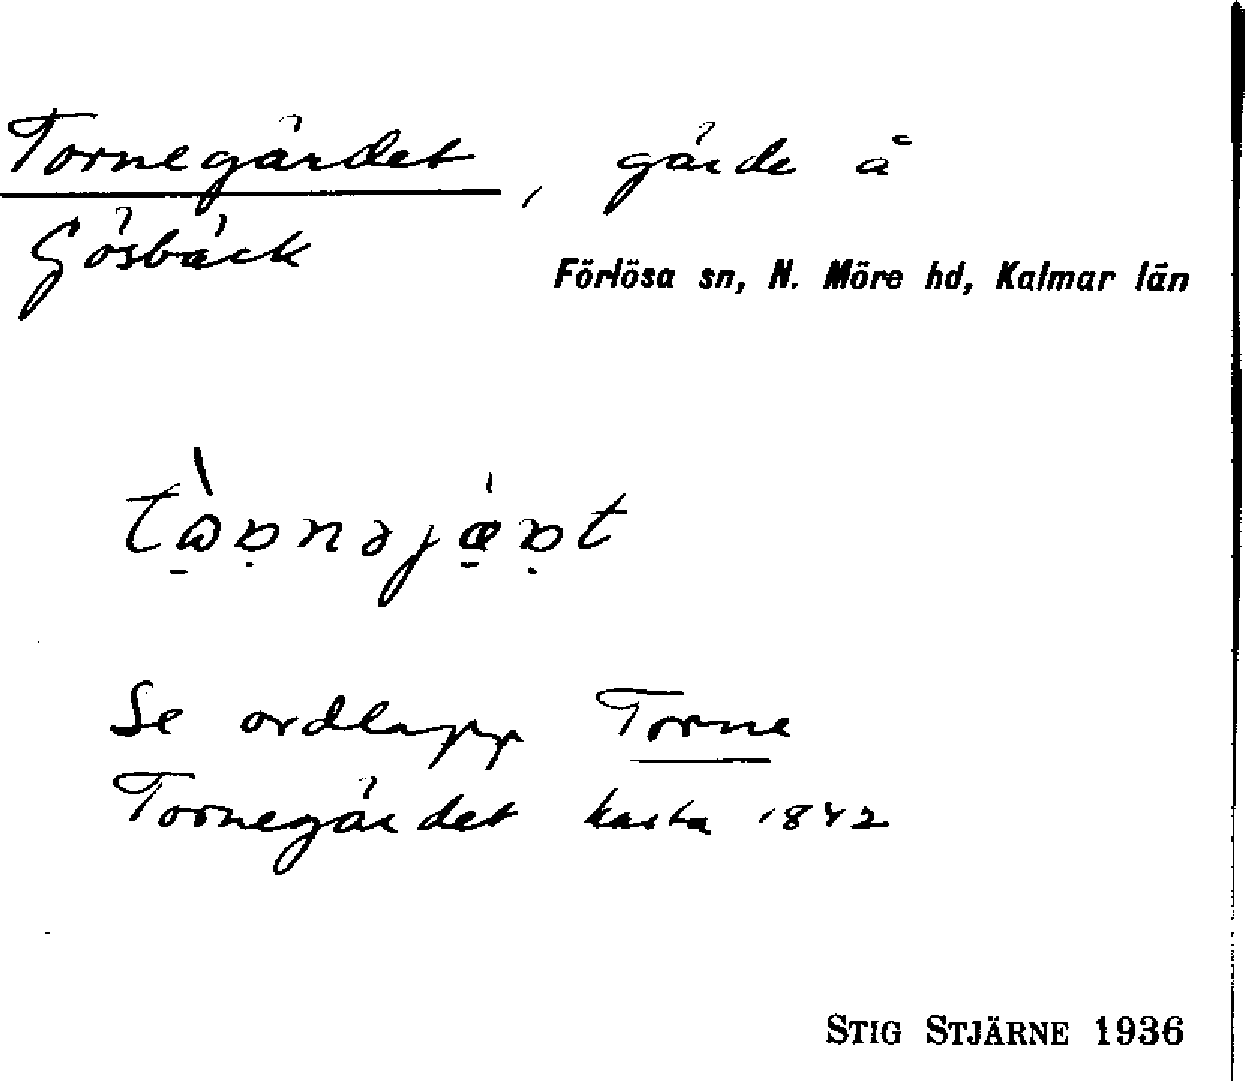 Tornegärdet, gärde å
Gösbäck
Förlösa sn, N. Möre hd, Kalmar län
Se ordlapp Torne
Tornegärdet karta 1842
STIG STJÄRNE 1936